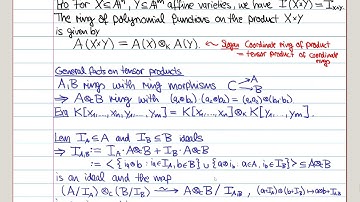 Pro For X ⊆ Aⁿ, Y ⊆ Aᵐ affine varieties, we have I(X×Y) = I_{X,Y}.
The ring of polynomial functions on the product X×Y
is given by
A(X×Y) = A(X) ⊗_K A(Y). Slogan Coordinate ring of product
= tensor product of coordinate
rings
General facts on tensor products
A, B rings with ring morphisms C → A
→ B
⇒ A⊗_C B ring with (a₁⊗b₁)·(a₂⊗b₂) = (a₁a₂)⊗(b₁b₂)
Exa K[x₁,…,xₙ,y₁,…,yₘ] = K[x₁,…,xₙ]⊗_K K[y₁,…,yₘ]
Lem I_A ⊆ A and I_B ⊆ B ideals
⇒ I_{A,B} := I_A·A⊗B + I_B·A⊗B
:= <{i_A⊗b : i_A∈I_A, b∈B} ∪ {a⊗i_B : a∈A, i_B∈I_B}> ⊆ A⊗B
is an ideal and the map
(A/I_A) ⊗_C (B/I_B) → A⊗B / I_{A,B}, (a+I_A)⊗(b+I_B) ↦ a⊗b+I_{A,B}